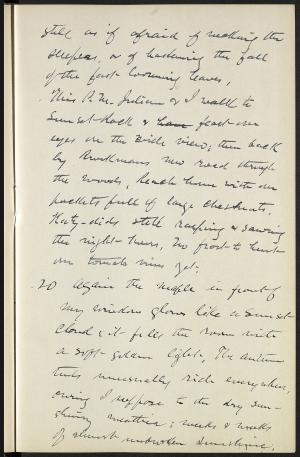 still as if afraid of waking the
sleepers, or of hastening the fall
of the fast loosening leaves,
This P.M. Julian & I walk to
Sunset Rock & have feast our
eyes on the wide view; then back
by Brookmans new road through
the woods. Reach home with our
pockets full of large chestnuts.
Katy-dids still rasping & sawing
the night-hours, No frost to hurt
our tomato vines yet.
20 Again the maple in front of
my window glows like a sunset
cloud & it fills the room with
a soft golden light. The autumn
tints unusually rich everywhere,
owing I suppose to the dry sun-
shiny weather; weeks & weeks
of almost unbroken sunshine.